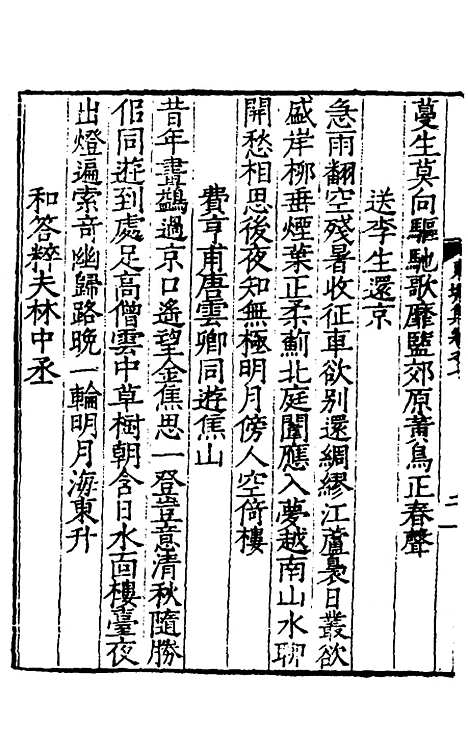 蔓生莫向驅馳歌靡盬郊原黃鳥正春聲
送李生還京
急雨翻空殘暑收征車欲別還綢繆江蘆裊日叢欲
盛岸柳垂煙葉正柔薊北庭闈應入夢越南山水聊
開愁相思後夜知無極明月傍人空倚樓
費亨甫唐雲卿同遊焦山
昔年畫鷁過京口遙望金焦思一登豈意清秋隨勝
侶同遊到處足高僧雲中草樹朝含日水面樓臺夜
出燈遍索奇幽歸路晚一輪明月海東升
和答粹夫林中丞